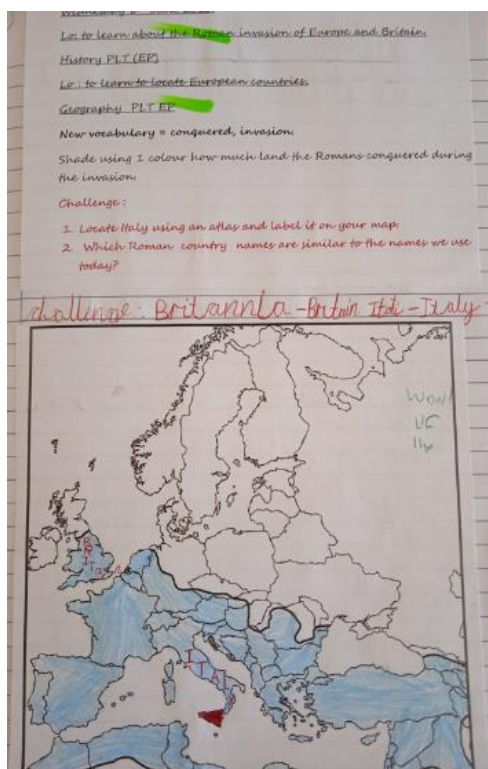 Lo: to learn about the Roman invasion of Europe and Britain.
History PLT (EP)
Lo : to learn to locate European countries.
Geography PLT EP
New vocabulary = conquered, invasion.
Shade using 1 colour how much land the Romans conquered during
the invasion.
Challenge :
1. Locate Italy using an atlas and label it on your map.
2. Which Roman country names are similar to the names we use
today?
challenge: Britannia - Britain Itali - Italy
ITALY